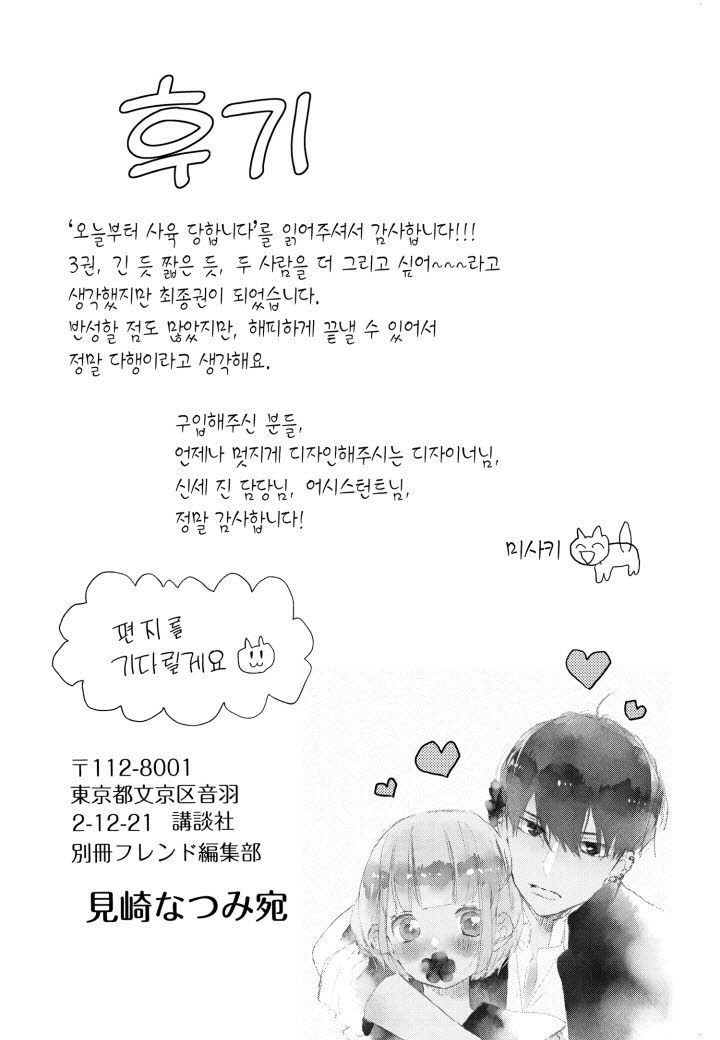 후기
'오늘부터 사육 당합니다'를 읽어주셔서 감사합니다!!!
3권, 긴 듯 짧은 듯, 두 사람을 더 그리고 싶어~~~라고
생각했지만 최종권이 되었습니다.
반성할 점도 많았지만, 해피하게 끝낼 수 있어서
정말 다행이라고 생각해요.
구입해주신 분들,
언제나 멋지게 디자인해주시는 디자이너님,
신세 진 담당님, 어시스턴트님,
정말 감사합니다!
미사키
편지를
기다릴게요
〒112-8001
東京都文京区音羽
2-12-21 講談社
別冊フレンド編集部
見崎なつみ宛